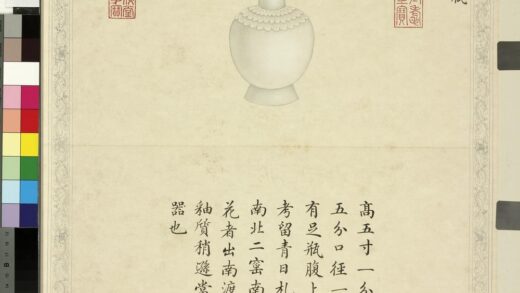 瓶
高五寸一分
五分口徑一
有足瓶腹上
考留青日札
南北二窑南
花者出南渡
釉質稍遜當
器也